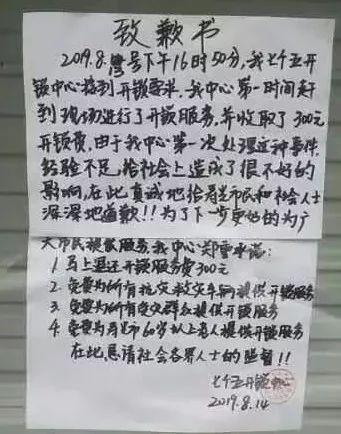 致歉书
2019.8.号下午16时50分,我七个五开
锁中心接到开锁需求,我中心第一时间赶
到现场进行了开锁服务,并收取了300元
开锁费,由于我中心第一次处理这种事件,
经验不足,给社会上造成了很不好的
影响,在此真诚地给市民和社会人士
深深地道歉!!为了下一步更好的为广
大市民提供服务,我中心郑重承诺:
1 马上退还开锁服务费300元
2 免费为所有抗灾救灾车辆提供开锁服务
3 免费为所有受灾群众提供开锁服务
4 免费为市60岁以上老人提供开锁服务
在此,恳请社会各界人士的监督!!
七个五开锁中心
2019.8.14